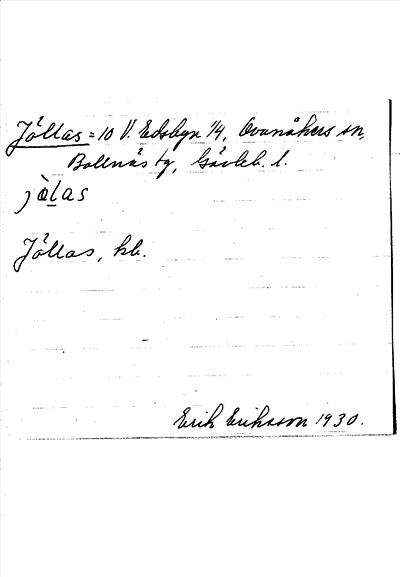 Jållas = 10 V. Edsbyn 1/4, Ovanåkers sn,
Bollnäs tg, Gävleb. l.
jàlas
Jållas, hb.
Erik Eriksson 1930.